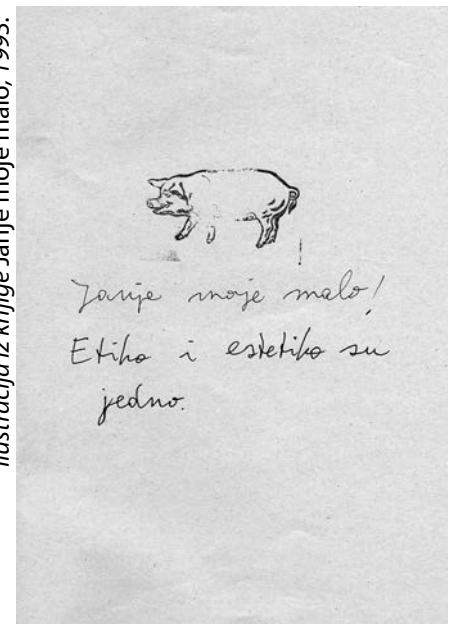 Ilustracija iz knjige Janje moje malo, 1995.
Janje moje malo!
Etika i estetika su
jedno.